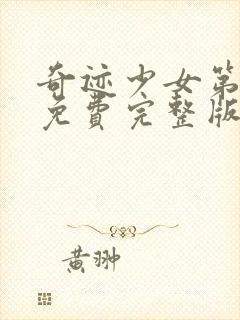 奇迹少女第
免费完整版
黄翀